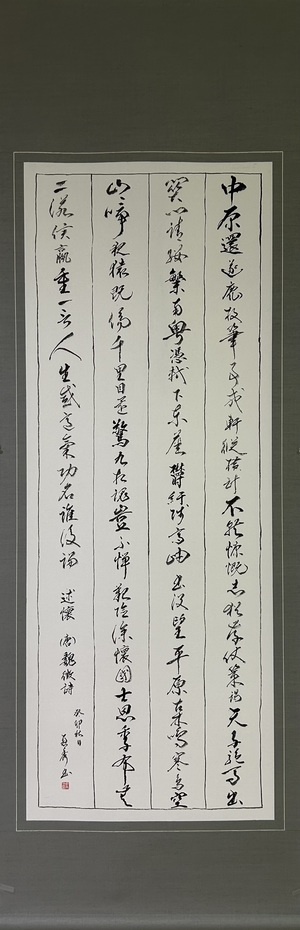 中原還逐鹿投筆事戎軒縱橫計不就慷慨志猶存仗策謁天子驅馬出
關門請纓繫南粵憑軾下東藩鬱紆陟高岫出沒望平原古木鳴寒鳥空
山啼夜猿既傷千里目還驚九折魂豈不憚艱險深懷國士恩季布無
二諾侯嬴重一言人生感意氣功名誰復論 述懷 唐魏徵詩
癸卯秋日